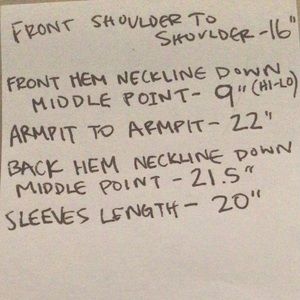 FRONT SHOULDER TO
SHOULDER - 16"
FRONT HEM NECKLINE DOWN
MIDDLE POINT - 9" (HI-LO)
ARMPIT TO ARMPIT - 22"
BACK HEM NECKLINE DOWN
MIDDLE POINT - 21.5"
SLEEVES LENGTH - 20"